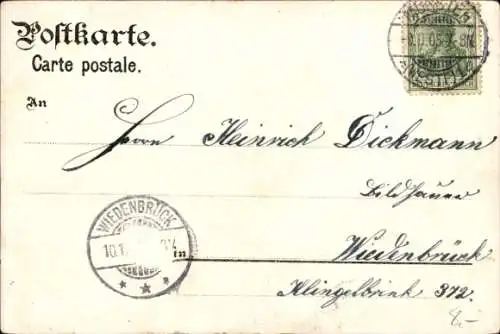 Postkarte.
Carte postale.
An
Herrn Heinrich Dickmann
Bildhauer
in Wiedenbrück
Klingelbrink 372.
WIEDENBRÜCK
10.1